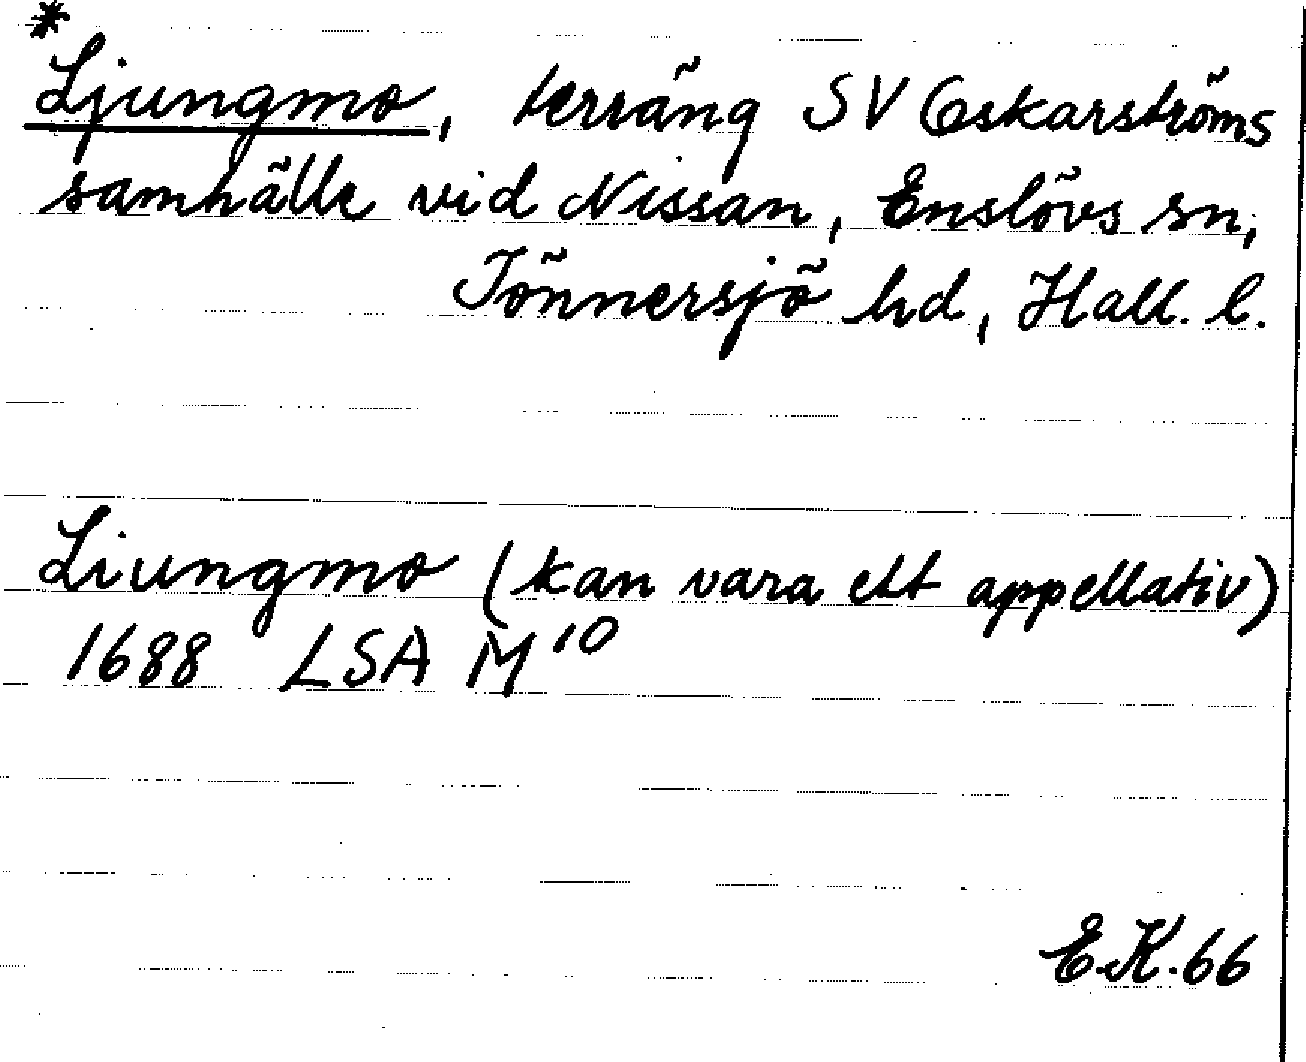 *
Ljungmo, terräng SV Oskarströms
samhälle vid Nissan, Enslövs sn,
Tönnersjö hd, Hall. l.
Liungmo (kan vara ett appellativ)
1688 LSA M10
E.K. 66